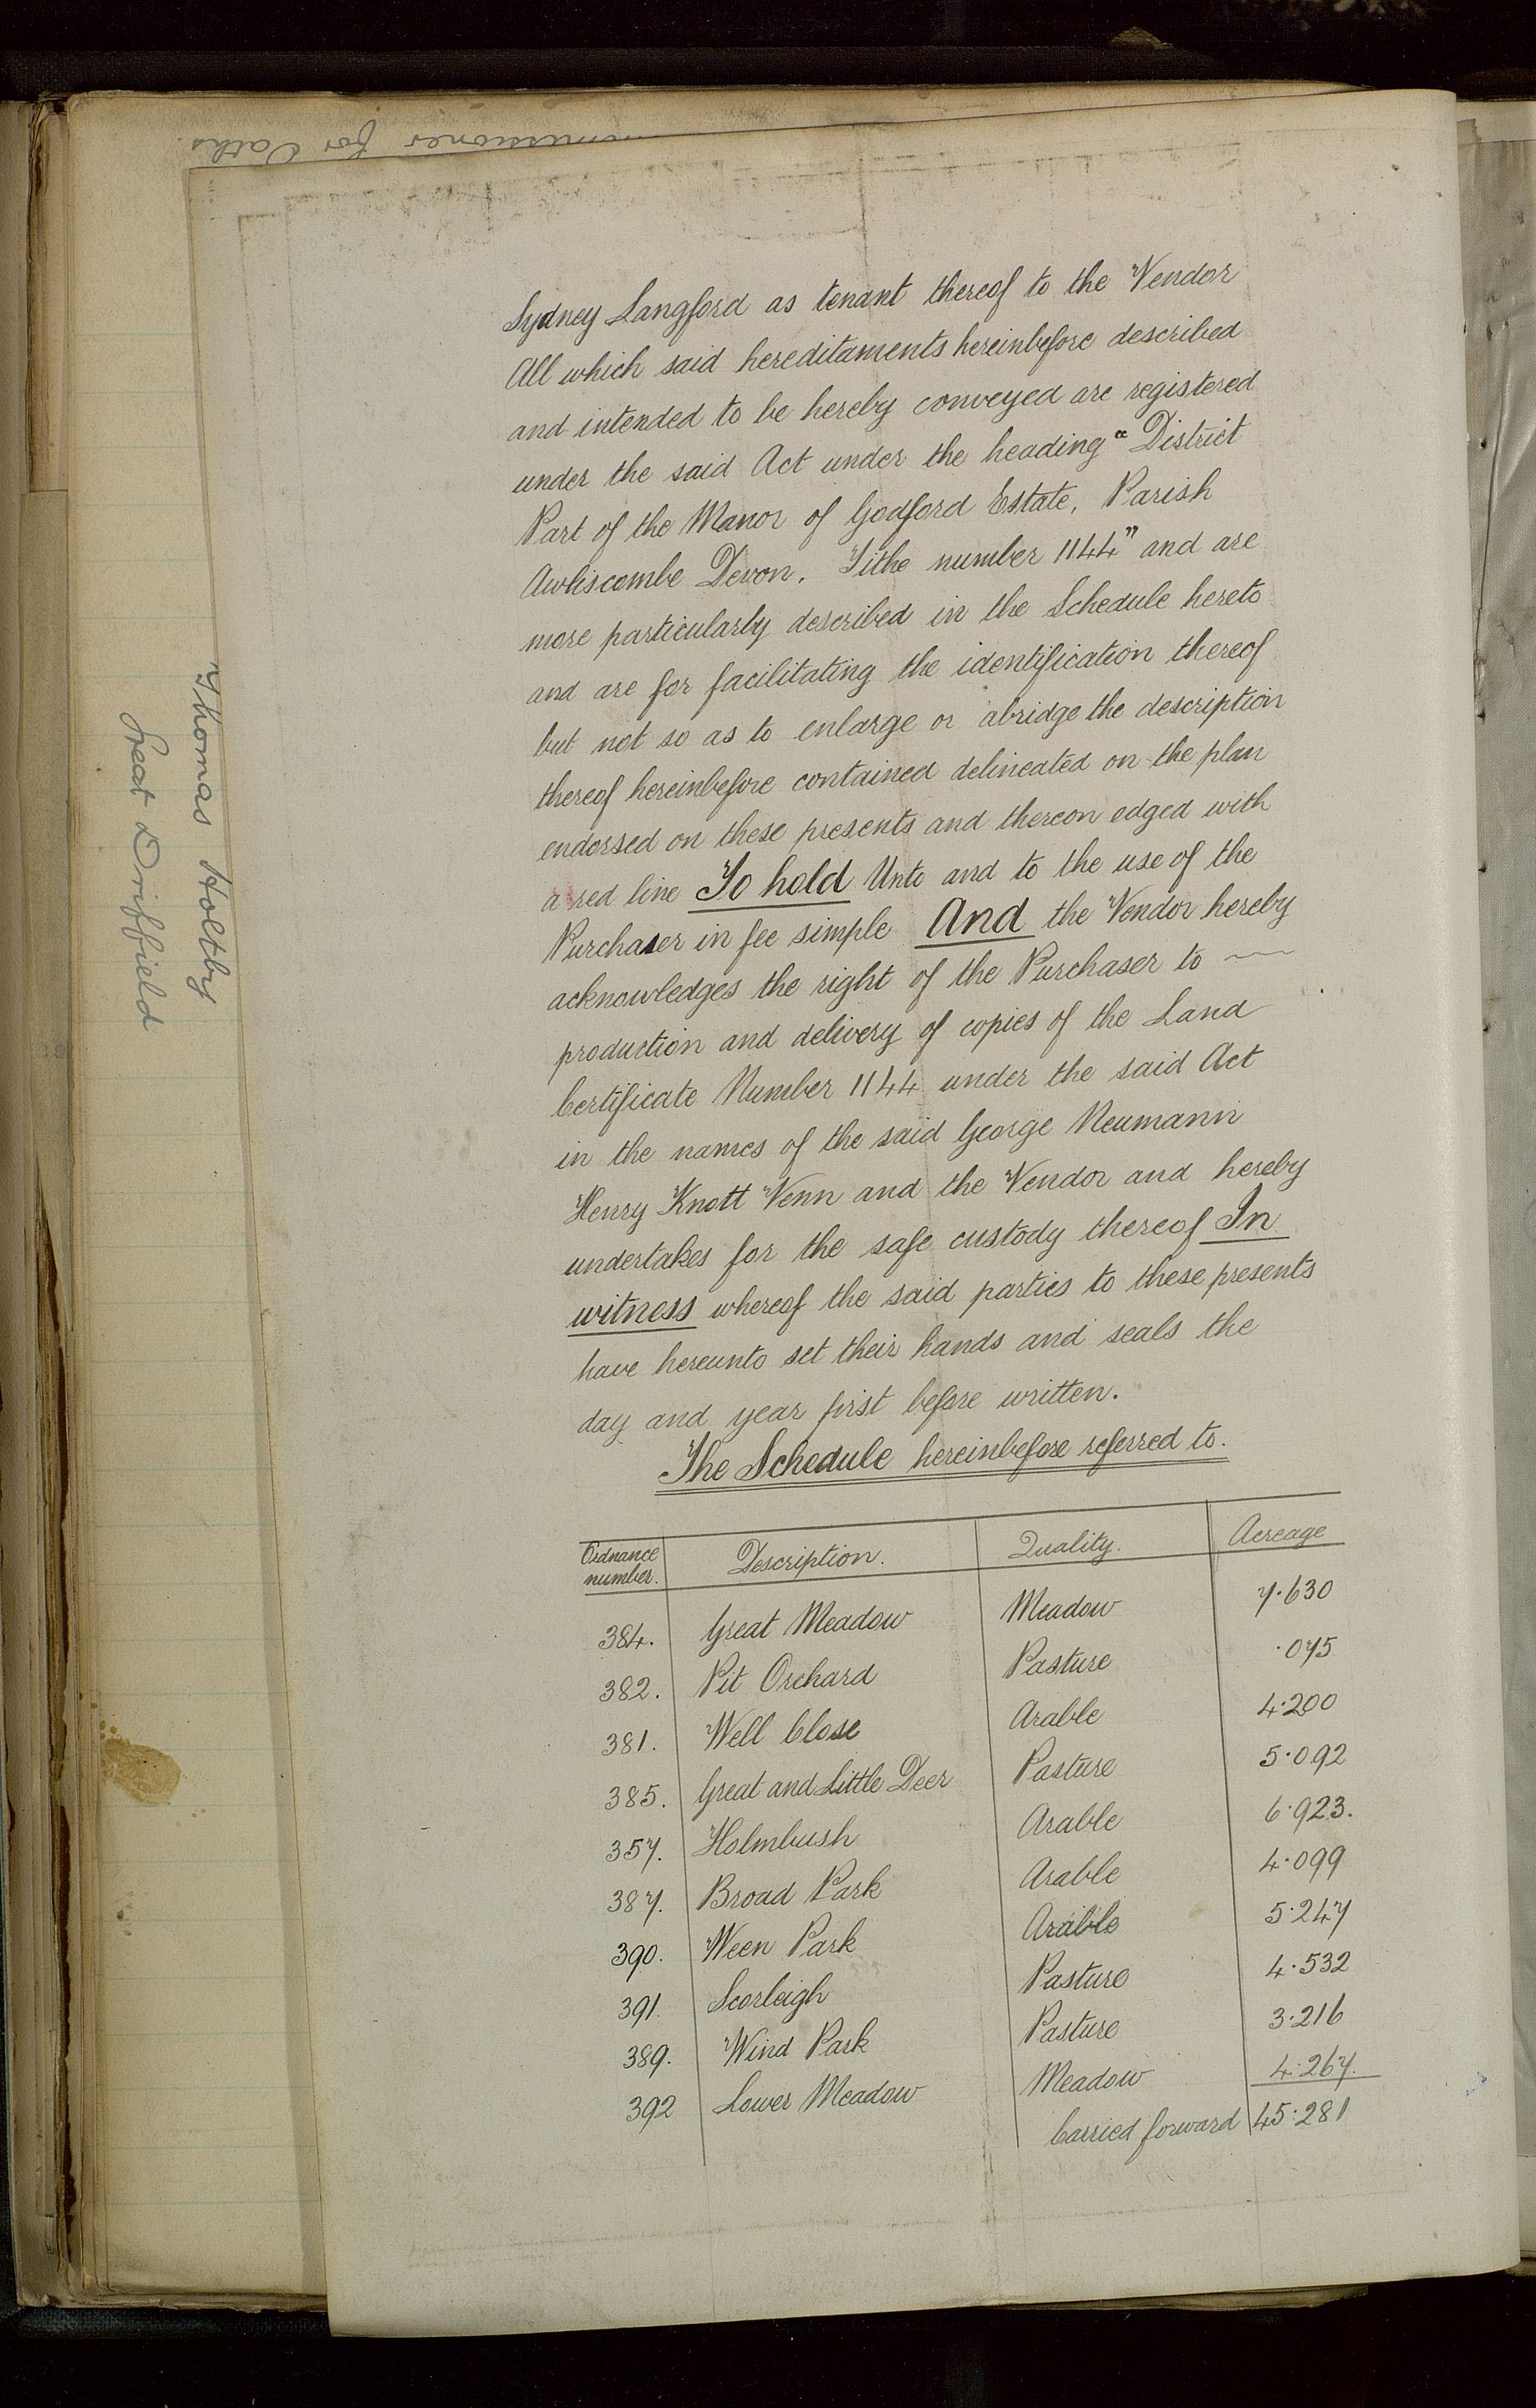 Commissioner for Oaths.
Thomas Holtby
Great Driffield
Sydney Langford as tenant thereof to the Vendor
All which said hereditaments hereinbefore described
and intended to be hereby conveyed are registered
under the said Act under the heading "District
Part of the Manor of Godford Estate, Parish
Awliscombe Devon. Tithe number 1144" and are
more particularly described in the Schedule hereto
and are for facilitating the identification thereof
but not so as to enlarge or abridge the description
thereof hereinbefore contained delineated on the plan
endorsed on these presents and thereon edged with
a red line To hold Unto and to the use of the
Purchaser in fee simple And the Vendor hereby
acknowledges the right of the Purchaser to
production and delivery of copies of the Land
Certificate Number 1144 under the said Act
in the names of the said George Neumann
Henry Knott Venn and the Vendor and hereby
undertakes for the safe custody thereof In
witness whereof the said parties to these presents
have hereunto set their hands and seals the
day and year first before written.
The Schedule hereinbefore referred to.
Ordnance number. Description. Quality. Acreage
384. Great Meadow Meadow 7.630
382. Pit Orchard Pasture .075
381. Well Close Arable 4.200
385. Great and Little Deer Pasture 5.092
357. Holmbush Arable 6.923.
387. Broad Park Arable 4.099
390. Ween Park Arable 5.247
391. Scorleigh Pasture 4.532
389. Wind Park Pasture 3.216
392 Lower Meadow Meadow 4.267.
Carried forward 45.281